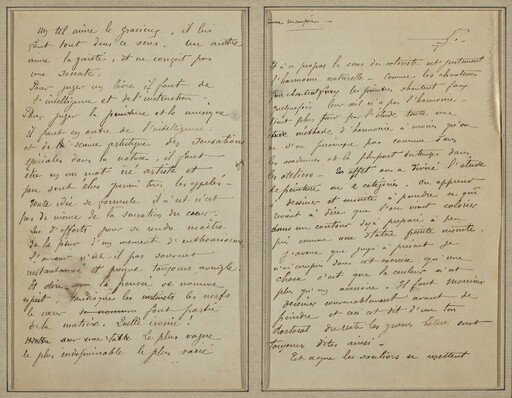 Un tel aime le gracieux, il lui
faut tout dans ce sens. Un autre
aime la gaieté, et ne conçoit pas
une Sonate.
Pour juger un livre il faut de
l'intelligence et de l'instruction.
Pour juger la peinture et la musique
il faut en outre de l'intelligence
et de la science artistique des sensations
spéciales dans la nature, il faut
être en un mot né artiste et
peu sont élus parmi tous les appelés.
Toute idée se formule il n'en est
pas de même de la sensation du cœur.
Que d'efforts pour se rendre maître
de la peur, d'un moment d'enthousiasme
L'amour n'est-il pas souvent
instantané et presque toujours aveugle.
Et dire que la pensée se nomme
esprit, tandis que les instincts les nerfs
le cœur font partie
de la matière. Quelle ironie!
Le plus vague
le plus indéfinissable le plus varié
Et à ce propos le sens du coloriste est justement
l'harmonie naturelle. Comme les chanteurs
les peintres chantent faux
quelquefois leur œil n'a pas l'harmonie.
Vient plus tard par l'étude toute une
méthode d'harmonie à moins qu'on
ne s'en préoccupe pas comme dans
les académies et la plupart du temps dans
les ateliers. En effet on a divisé l'étude
de peinture en 2 catégories. On apprend
à dessiner et ensuite à peindre ce qui
revient à dire que l'on vient colorier
dans un contour déjà préparé à peu
près comme une statue peinte ensuite.
J'avoue que jusqu'à présent je
n'ai compris dans cet exercice qu'une
chose c'est que la couleur n'est
plus qu'un accessoire. Il faut Monsieur
dessiner convenablement avant de
peindre et ceci est dit d'un ton
doctoral du reste les grosses bêtises sont
toujours dites ainsi.
Est-ce que les souliers se mettent